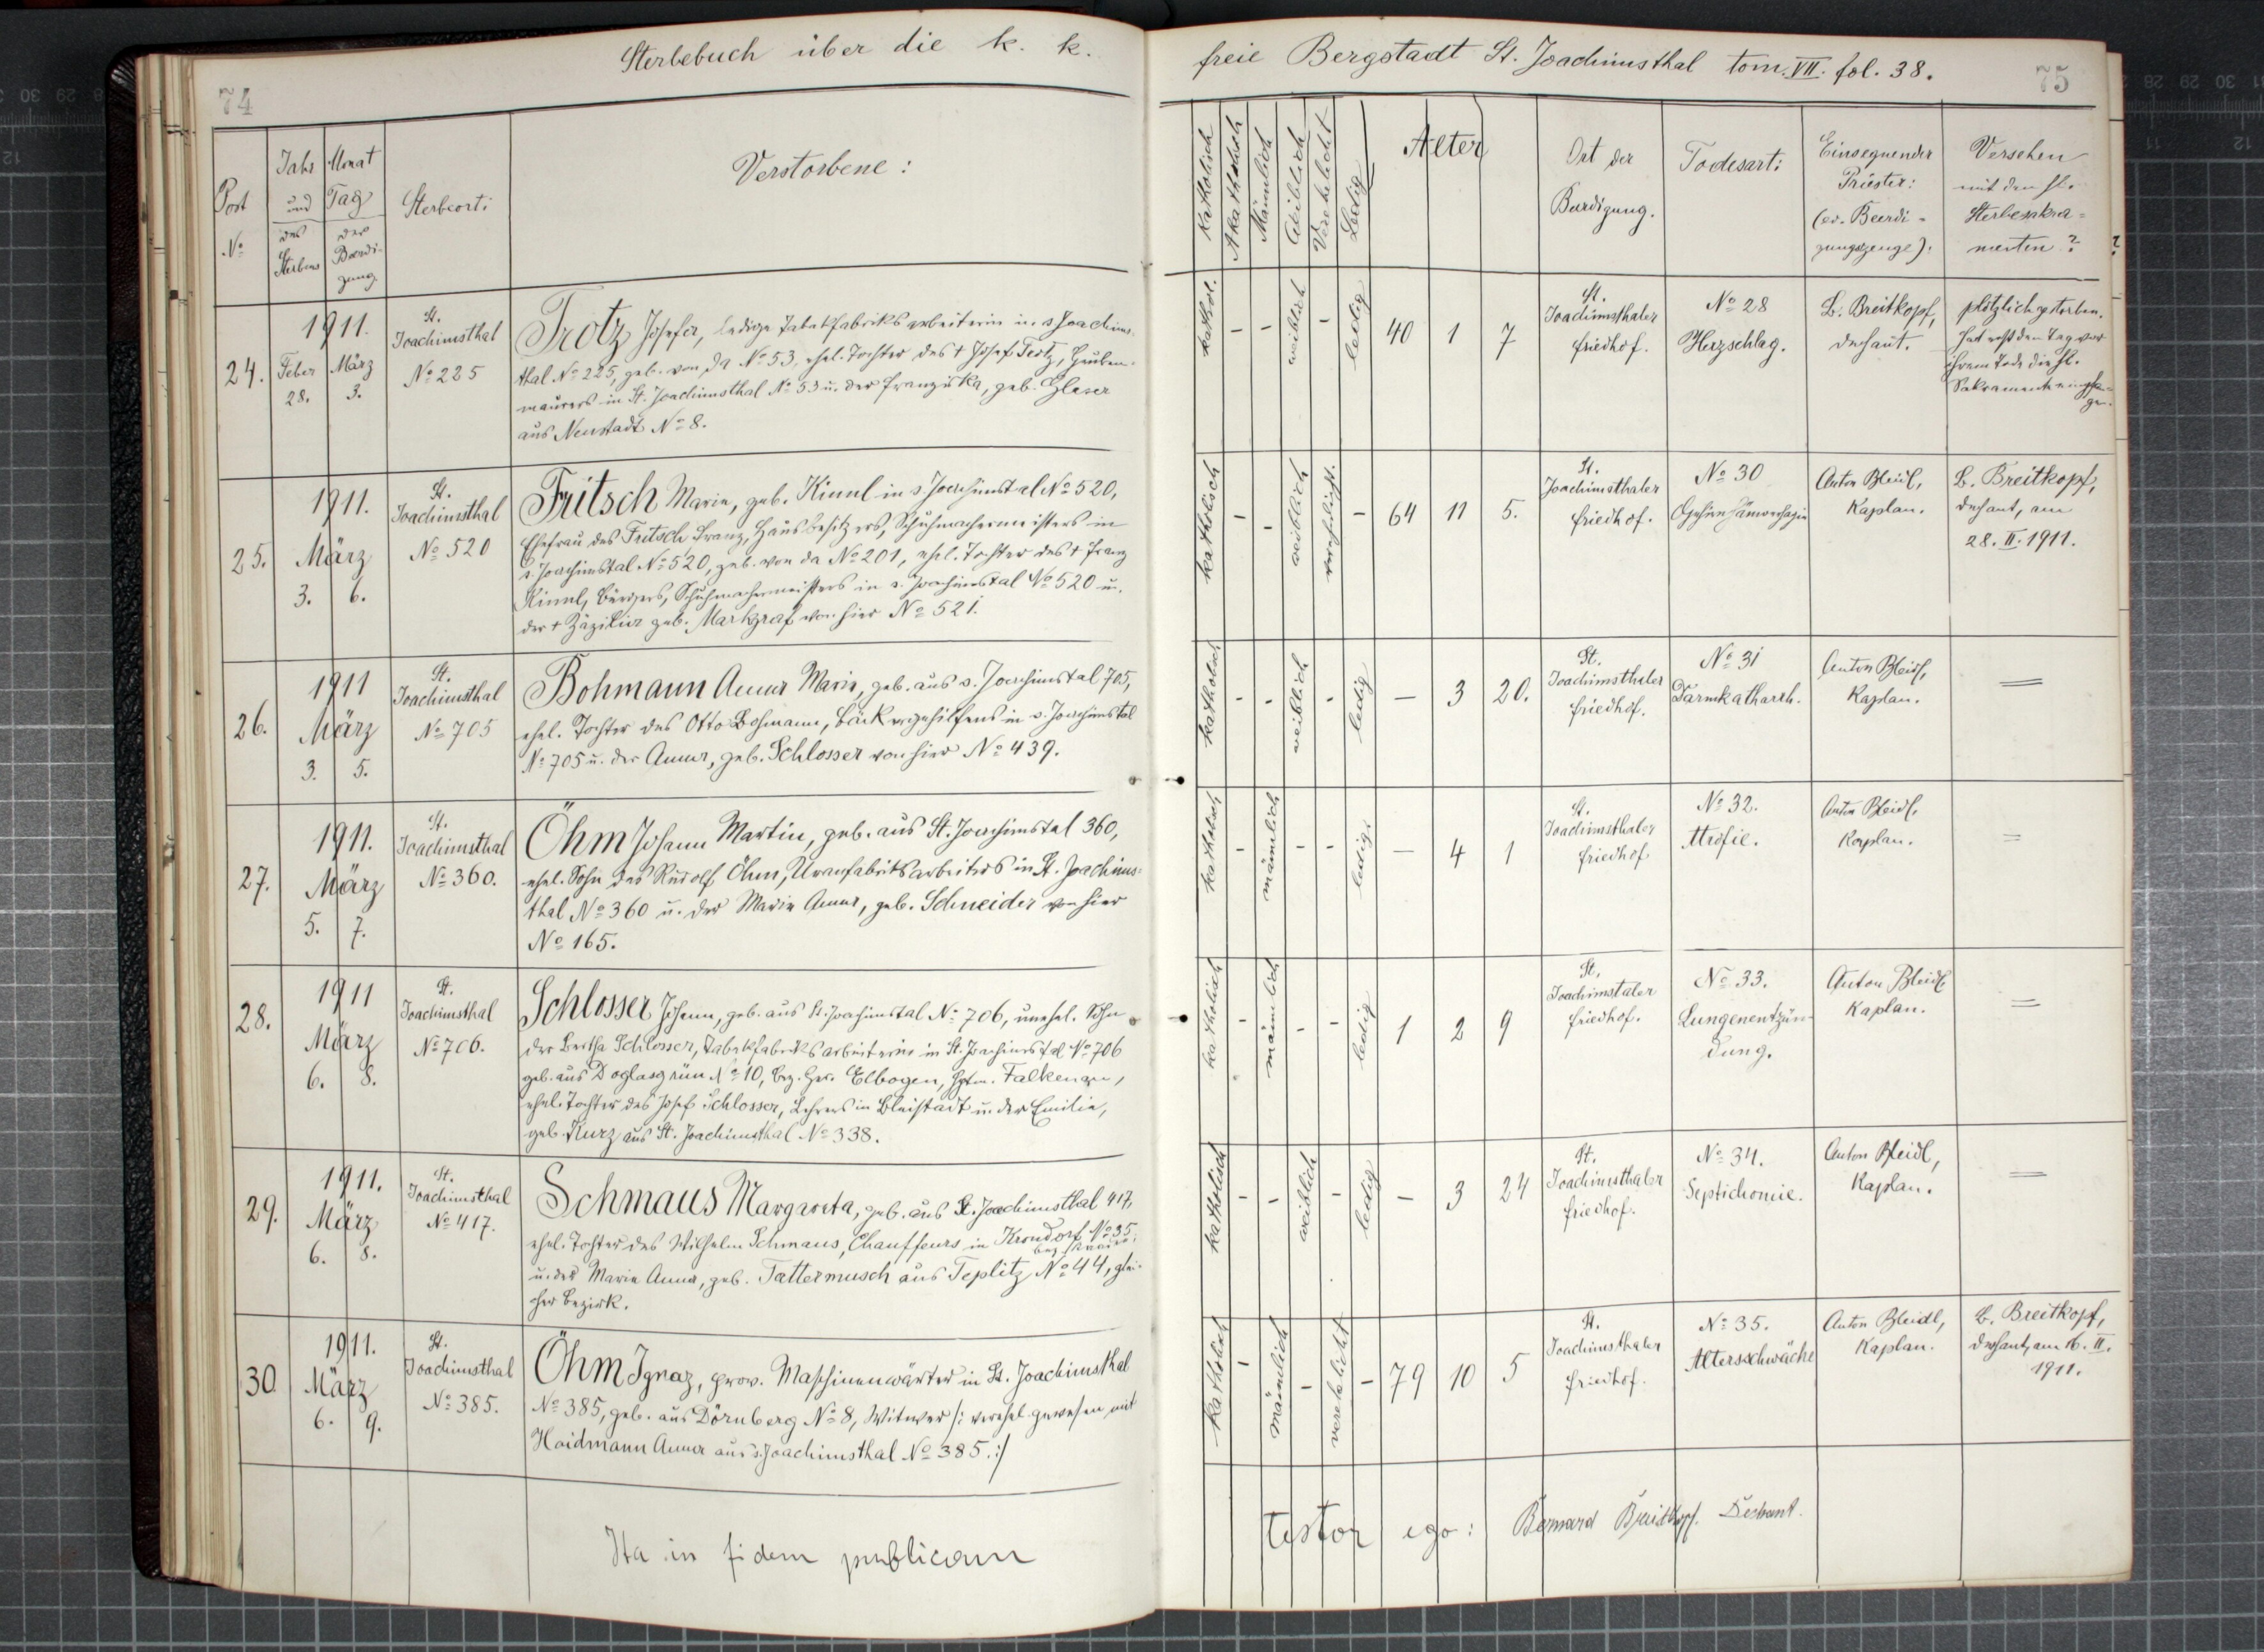 Sterbebuch über die k. k.
freie Bergstadt St. Joachimsthal tom. VII. fol. 38.
74
75
Post
No
Jahr
und
des
Sterbens
Monat
Tag
der
Beerdi-
gung
Sterbeort:
Verstorbene:
Katholisch
Akatholisch
Männlich
Weiblich
Verehelicht
Ledig
Alter
Ort der
Beerdigung.
Todesart:
Einsegnender
Priester:
(ev. Beerdi-
gungszeuge).
Versehen
mit den hl.
Sterbesakra-
menten?
24.
1911.
Feber März
28. 3.
St.
Joachimsthal
No 225
Trotz Josefa, ledige Tabakfabriksarbeiterin in s Joachims-
thal No 225, geb. von da No 53, ehel. Tochter des + Josef Trotz, Gruben-
maurers in St. Joachimsthal No 53 u. der Franziska, geb. Glaser
aus Neustadt No 8.
kathol. - - weiblich - ledig 40 1 7
St.
Joachimsthaler
friedhof.
No 28
Herzschlag.
B. Breitkopf,
Dechant.
plötzlich gestorben.
hat den Tag vor
ihrem Tode die hl.
Sakramente empfan-
gen.
25.
1911.
März
3. 6.
St.
Joachimsthal
No 520
Fritsch Maria, geb. Kinnl in s. Joachimstal No 520,
Ehefrau des Fritsch Franz, Hausbesitzers, Schuhmachermeisters in
s. Joachimstal No 520, geb. von da No 201, ehel. Tochter des + Franz
Kinnl, Bürgers, Schuhmachermeisters in s. Joachimstal No 520 u.
der + Zäzilia geb. Markgraf von hier No 521.
katholisch - - weiblich verehelicht. - 64 11 5.
St.
Joachimsthaler
friedhof.
No 30
Gehirnhämorrhagie
Anton Bleidl,
Kaplan.
B. Breitkopf,
Dechant, am
28. II. 1911.
26.
1911
März
3. 5.
St.
Joachimsthal
No 705
Bohmann Anna Maria, geb. aus s. Joachimstal 705,
ehel. Tochter des Otto Bohmann, Bäckergehilfens in s. Joachimstal
No 705 u. der Anna, geb. Schlosser von hier No 439.
katholisch - - weiblich - ledig - 3 20.
St.
Joachimsthaler
friedhof.
No 31
Darmkatharrh.
Anton Bleidl,
Kaplan.
=
27.
1911.
März
5. 7.
St.
Joachimsthal
No 360.
Öhm Johann Martin, geb. aus St. Joachimstal 360,
ehel. Sohn des Rudolf Öhm, Uranfabriksarbeiters in St. Joachims-
thal No 360 u. der Maria Anna, geb. Schneider von hier
No 165.
katholisch - männlich - - ledig. - 4 1
St.
Joachimsthaler
friedhof
No 32.
Atrofie.
Anton Bleidl,
Kaplan.
=
28.
1911
März
6. 8.
St.
Joachimsthal
No 706.
Schlosser Johann, geb. aus St. Joachimstal No 706, unehel. Sohn
der Bertha Schlosser, Tabakfabriksarbeiterin in St. Joachimstal No 706
geb. aus Doglasgrün No 10, Bez. Ger. Elbogen, Falkenau,
ehel. Tochter des Josef Schlosser, Lehrers in Bleistadt u. der Emilie,
geb. Kurz aus St. Joachimsthal No 338.
katholisch - männlich - - ledig 1 2 9
St.
Joachimstaler
friedhof.
No 33.
Lungenentzün-
dung.
Anton Bleidl
Kaplan.
=
29.
1911.
März
6. 8.
St.
Joachimsthal
No 417.
Schmaus Margareta, geb. aus St. Joachimsthal 417,
ehel. Tochter des Wilhelm Schmaus, Chauffeurs in Krondorf No 35
u. der Maria Anna, geb. Tattermusch aus Teplitz No 44, glei-
cher Bezirk.
katholisch - - weiblich - ledig - 3 24
St.
Joachimsthaler
friedhof.
No 34.
Septichomie.
Anton Bleidl,
Kaplan.
=
30
1911.
März
6. 9.
St.
Joachimsthal
No 385.
Öhm Ignaz, prov. Maschinenwärter in St. Joachimsthal
No 385, geb. aus Dörnberg No 8, Witwer /: verehel. gewesen mit
Haidmann Anna aus s. Joachimsthal No 385. :/
Katholisch - männlich - verehelicht - 79 10 5
St.
Joachimsthaler
friedhof.
No 35.
Altersschwäche
Anton Bleidl,
Kaplan.
B. Breitkopf,
Dechant, am 16. II.
1911.
Ita in fidem publicam
testor ego: Bernard Breitkopf. Dechant.